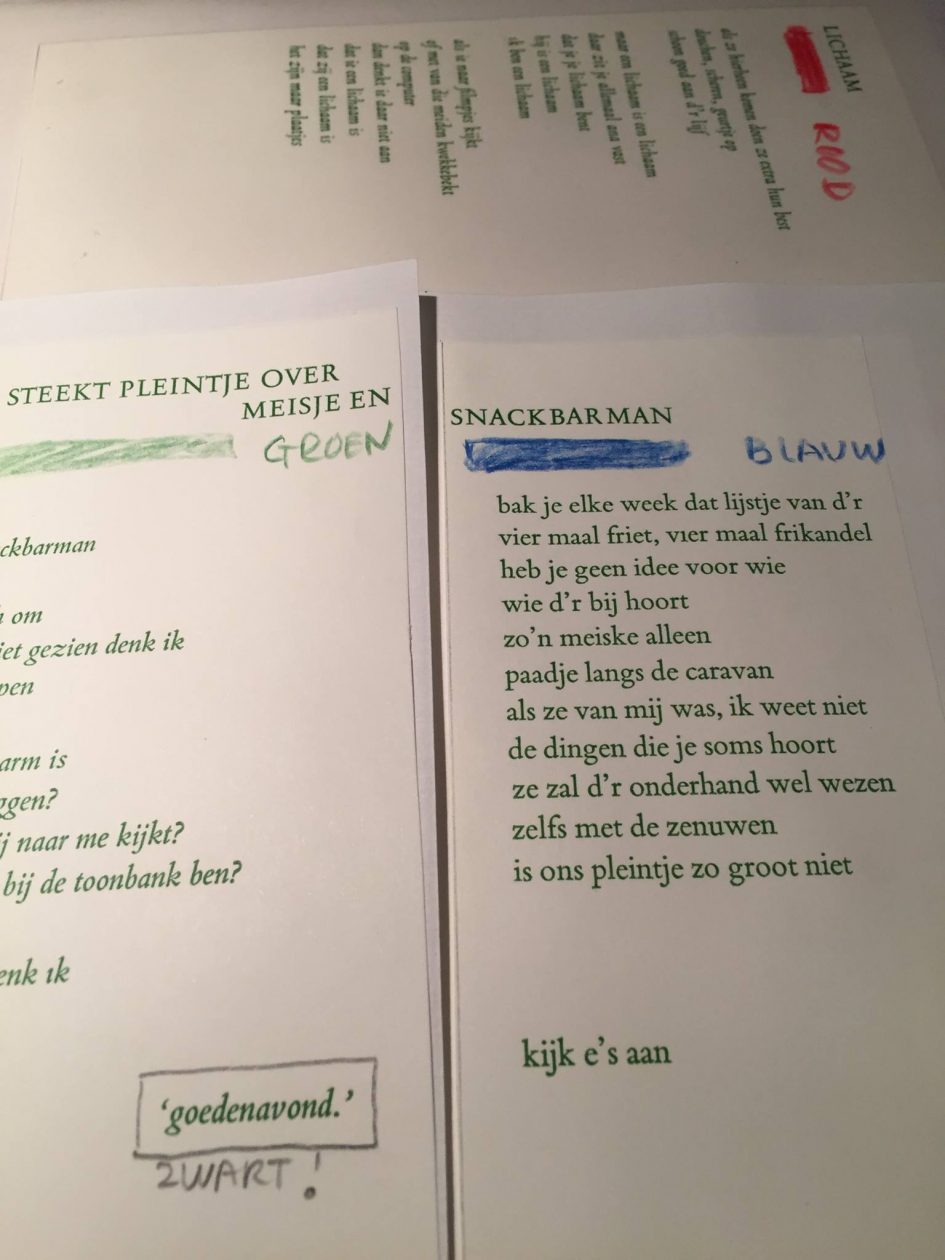 LICHAAM
ROOD
als ze hierheen komen doen ze extra hun best
douchen, scheren, geurtje op
schoon goed aan d'r lijf
maar een lichaam is een lichaam
daar zit je allemaal aan vast
dat je je lichaam bent
hij is een lichaam
ik ben een lichaam
als ie naar filmpjes kijkt
of met van die meiden kwekkebekt
op de computer
dan denkt ie daar niet aan
dat ie een lichaam is
dat zij een lichaam is
het zijn maar plaatjes
STEEKT PLEINTJE OVER
MEISJE EN
GROEN
ckbarman
om
iet gezien denk ik
pen
arm is
ggen?
j naar me kijkt?
bij de toonbank ben?
enk ik
‘goedenavond.’
ZWART!
SNACKBARMAN
BLAUW
bak je elke week dat lijstje van d’r
vier maal friet, vier maal frikandel
heb je geen idee voor wie
wie d’r bij hoort
zo’n meiske alleen
paadje langs de caravan
als ze van mij was, ik weet niet
de dingen die je soms hoort
ze zal d’r onderhand wel wezen
zelfs met de zenuwen
is ons pleintje zo groot niet
kijk e’s aan